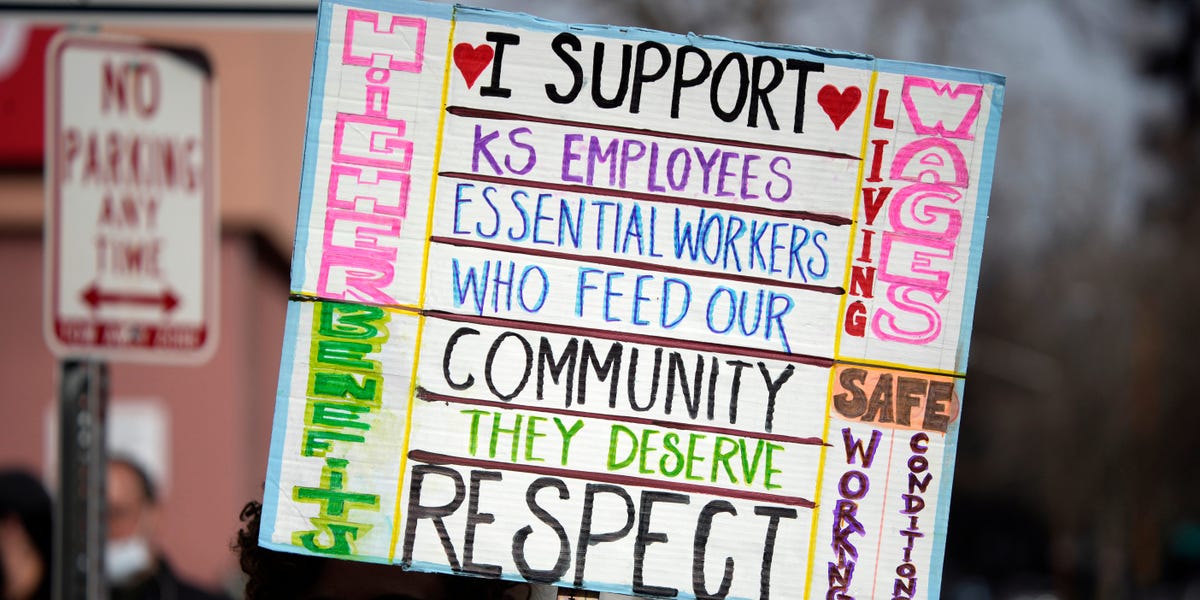 NO
PARKING
ANY
TIME
HIGHER
BENEFITS
I SUPPORT
KS EMPLOYEES
ESSENTIAL WORKERS
WHO FEED OUR
COMMUNITY
THEY DESERVE
RESPECT
LIVING
WAGES
SAFE
WORKING
CONDITIONS